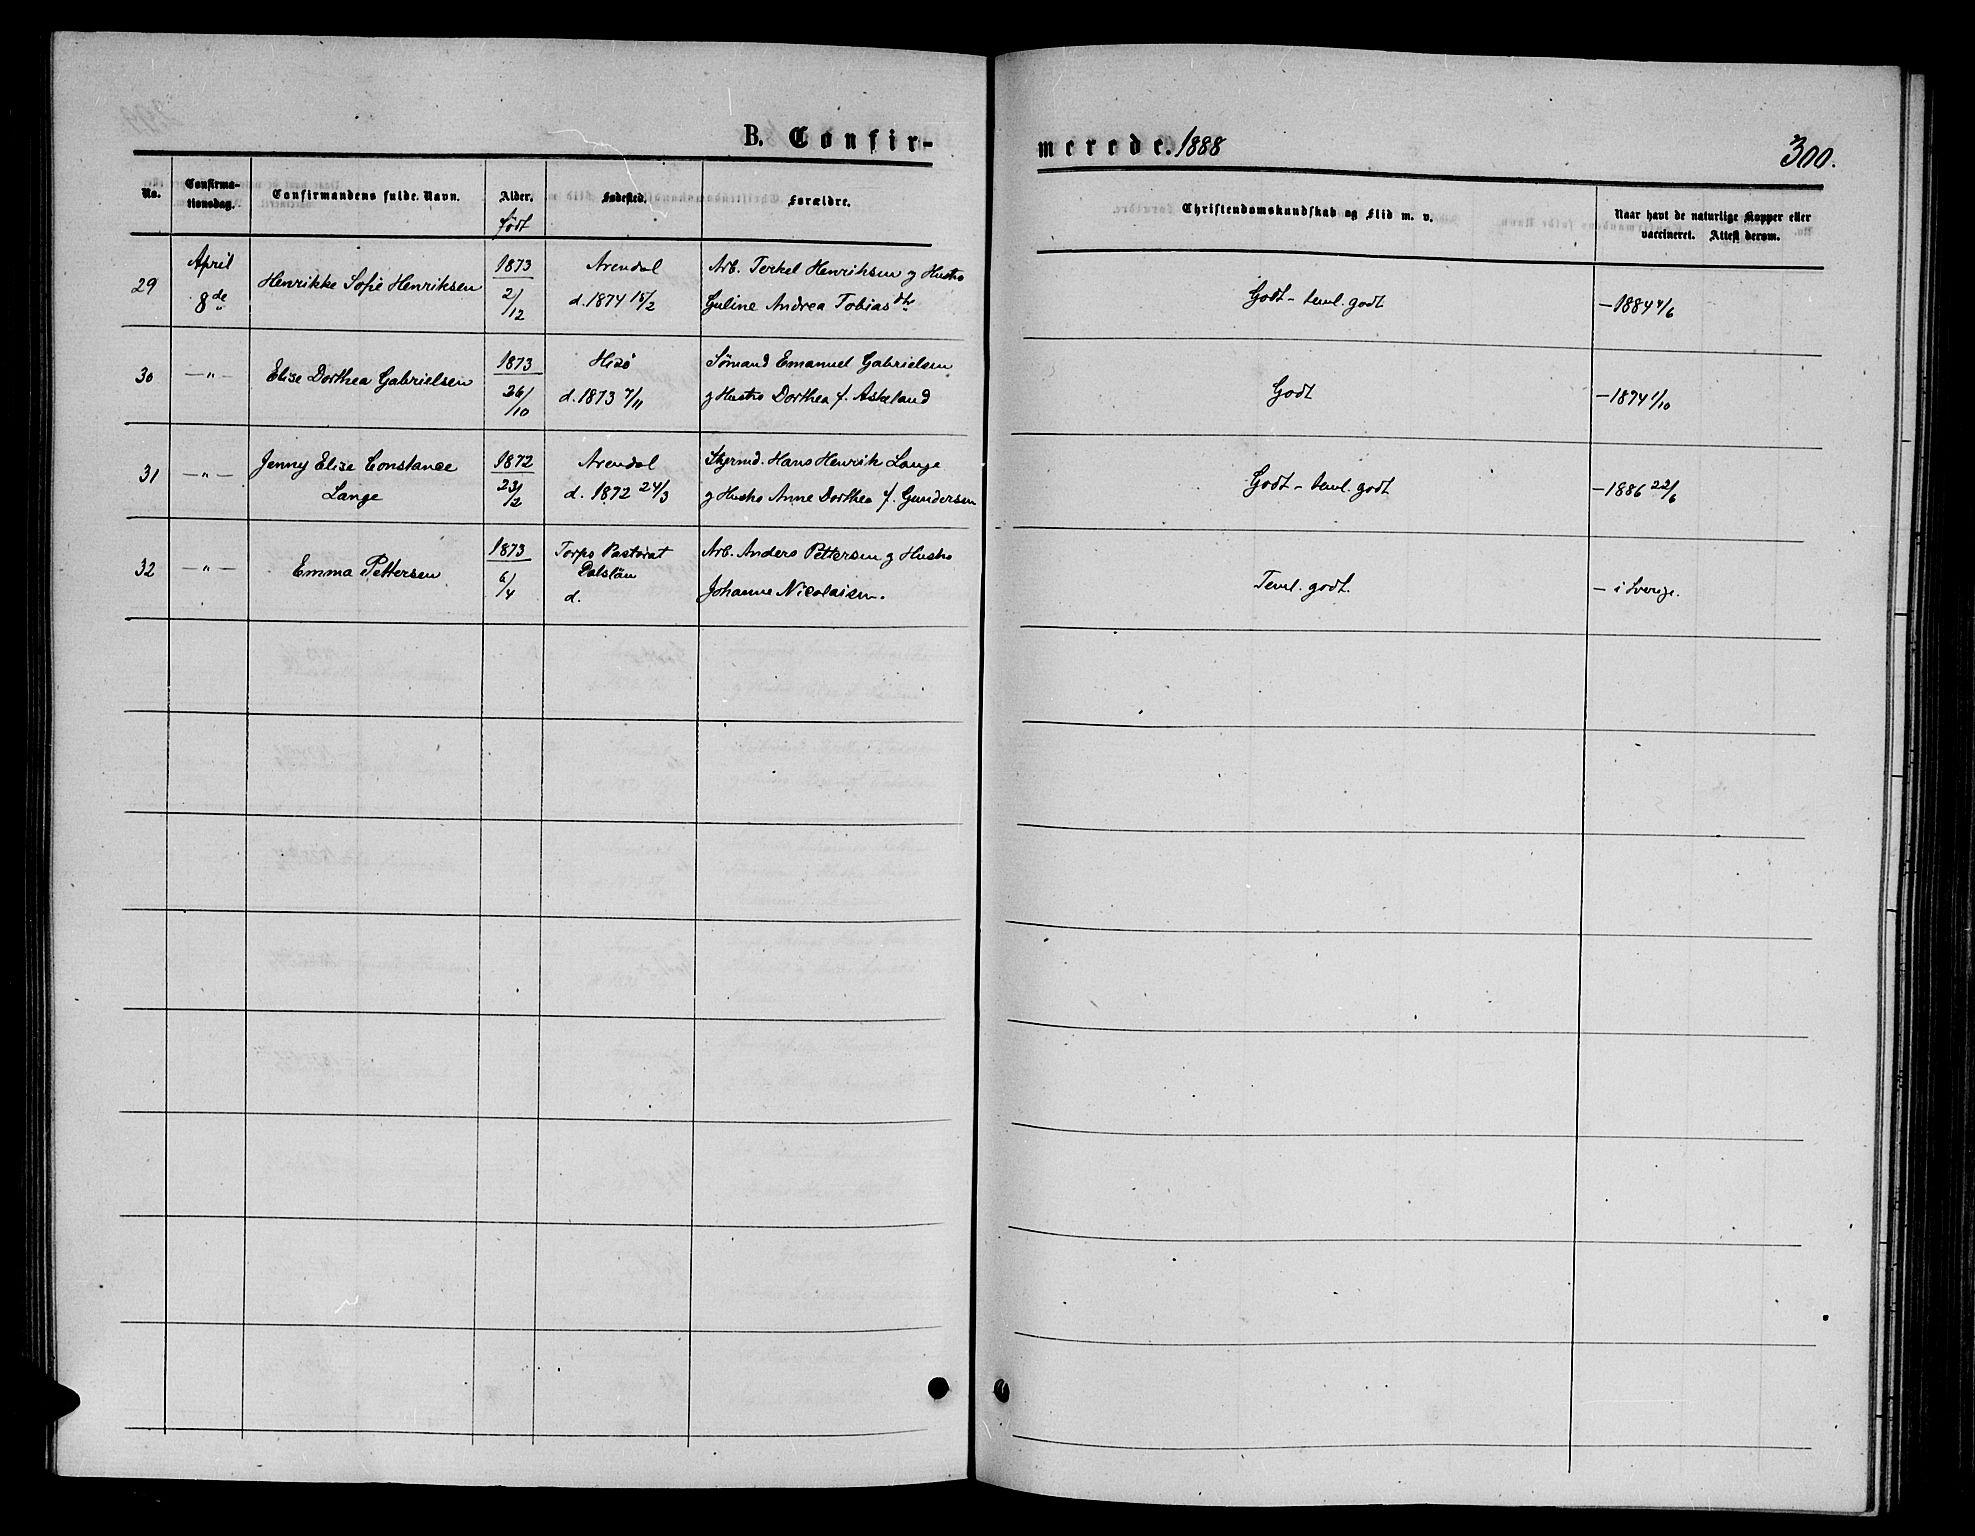 B. Confir-
merede. 1888
300.
No.
Confirma-
tionsdag.
Confirmandens fulde Navn.
Alder.
født
Fødested.
Forældre.
Christendomskundskab og Flid m. v.
Naar havt de naturlige Kopper eller
vaccineret. Attest derom.
29
April
8de
Henrikke Sofie Henriksen
1873
2/12
Arendal
d. 1874 15/2
Arb. Terkel Henriksen g Hustro
Guline Andrea Tobiasdtr
Godt - temel. godt
- 1884 4/6
30
- " -
Elise Dorthea Gabrielsen
1873
26/10
Hisø
d. 1873 7/11
Sømand Emanuel Gabrielsen
g Hustro Dorthea f. Askeland
Godt
- 1874 1/10
31
- " -
Jenny Elise Constance
Lange
1872
23/2
Arendal
d. 1872 24/3
Styrmd. Hans Henrik Lange
g Hustro Anne Dorthea f. Gundersen
Godt - temel. godt
- 1886 22/6
32
- " -
Emma Pettersen
1873
6/4
Torps Pastorat
Dalslän
d.
Arb. Anders Pettersen g Hustro
Johanne Nicolaisen.
Temel. godt.
- i Sverige.